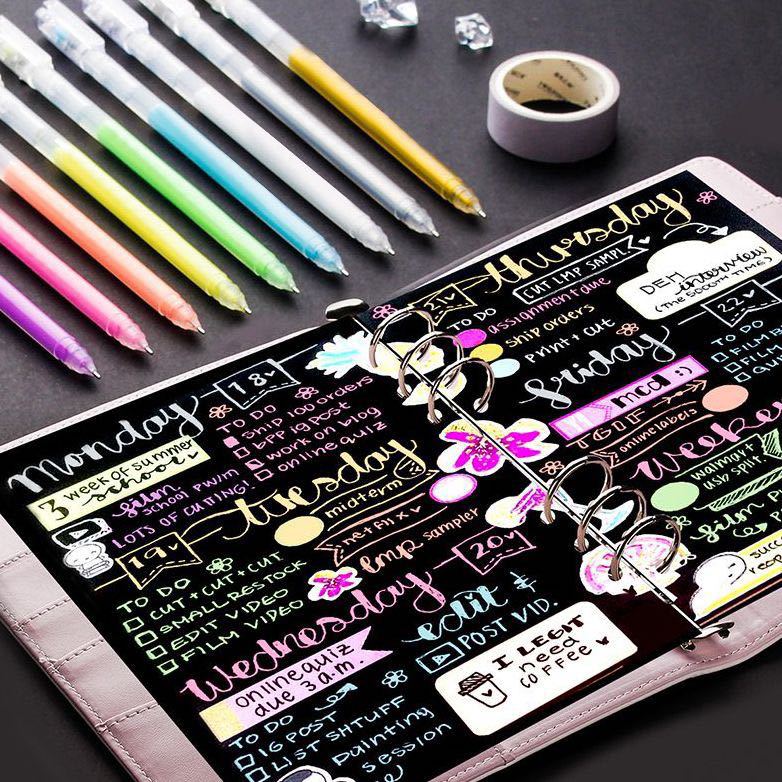 monday
18
TO DO
SHIP 100 ORDERS
BPP IG POST
WORK ON BLOG
ONLINE QUIZ
3 week of summer
school
film
SCHOOL RWM
LOTS OF CUTING!
tuesday
19
TO DO
CUT + CUT + CUT
SMALL RESTOCK
EDIT VIDEO
FILM VIDEO
midterm
netflix
lmp sampler
wednesday
20
online quiz
due 3 a.m.
TO DO
IG POST
LIST SHTUFF
painting
session
edit &
POST VID.
I LEGIT
need
COFFEE
thursday
21
CUT LMP SAMPL
TO DO
assignment due
ship orders
print + cut
DEH
interview
(THE 5000TH TIME)
friday
22
TO DO
FILM
mcd :)
TGIF
online labels
walmart
usb split
film